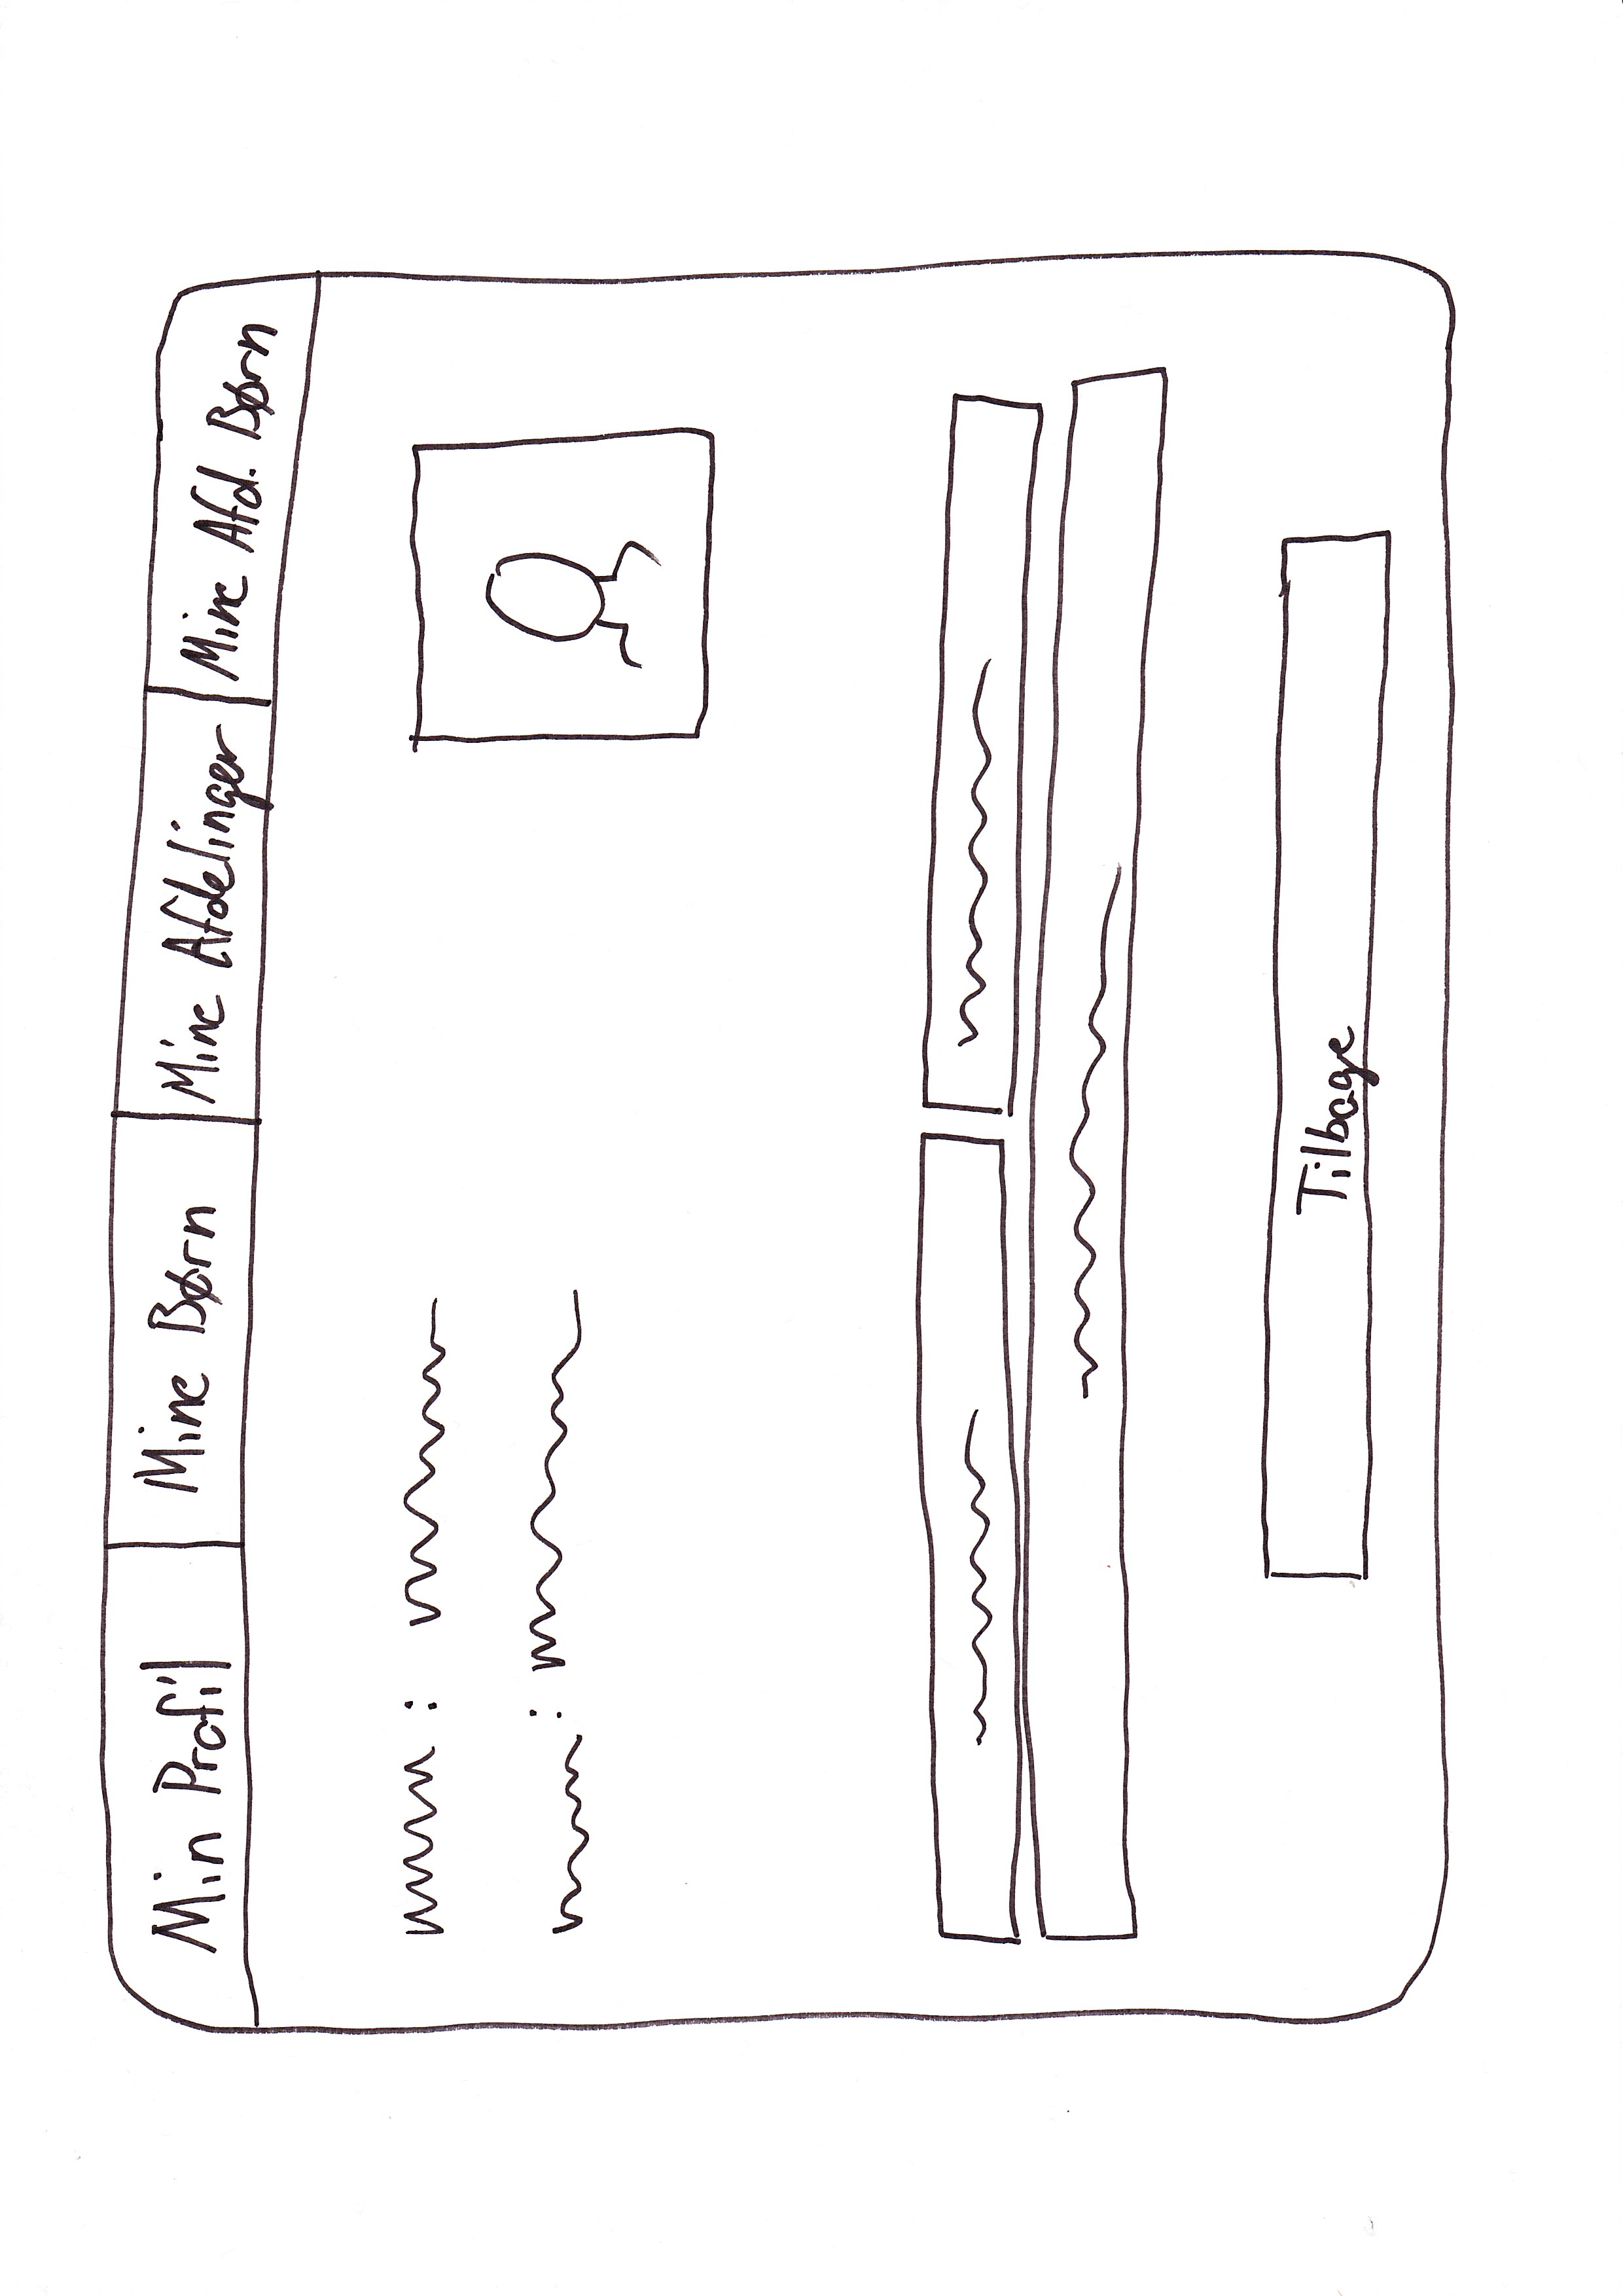 Min Profil
Mine Børn
Mine Afdelinger
Mine Afd. Børn
Tilbage